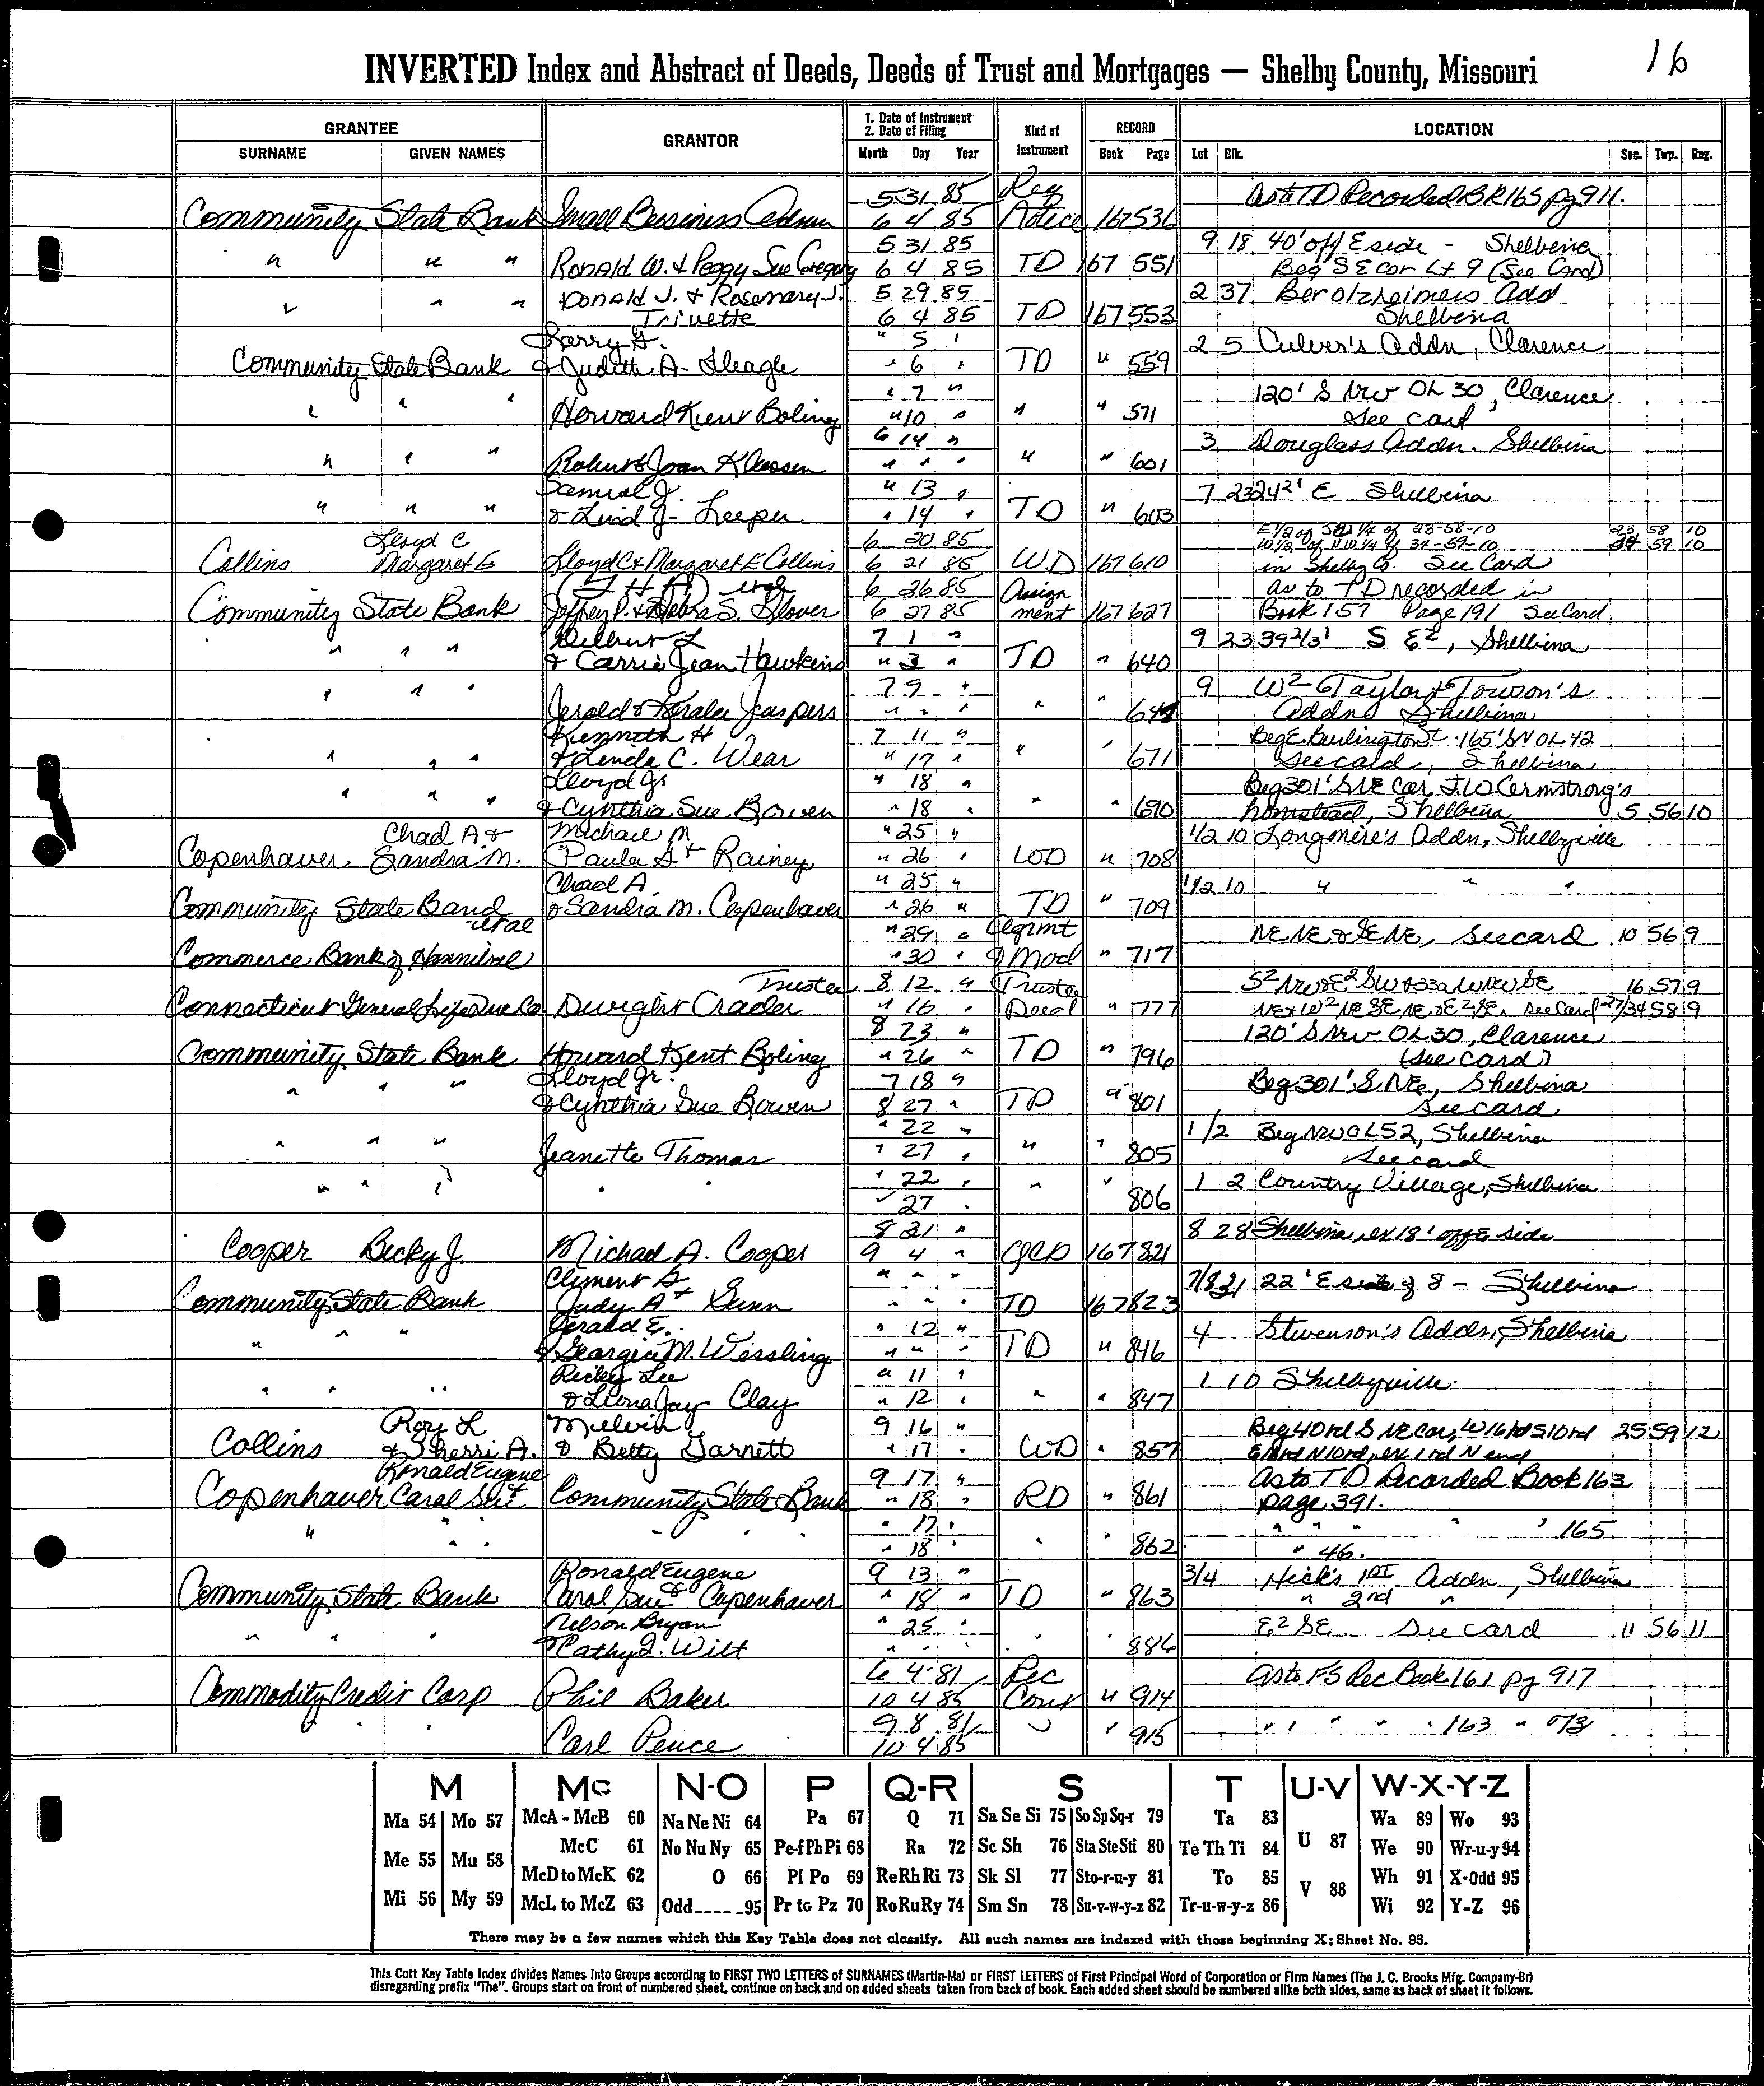 16
INVERTED Index and Abstract of Deeds, Deeds of Trust and Mortgages — Shelby County, Missouri
GRANTEE GRANTOR 1. Date of Instrument 2. Date of Filing Kind of Instrument RECORD LOCATION
SURNAME GIVEN NAMES Month Day Year Book Page Lot Blk. Sec. Twp. Rng.
5 31 85 Req As to TD Recorded BK 165 pg 911.
Community State Bank Small Bessiness Admn 6 4 85 Notice 167 536
5 31 85 9 18 40' off E side - Shelbina
" " " Ronald W. & Peggy Sue Gregory 6 4 85 TD 167 551 Beg SE cor Lt 9 (See Card)
Donald J. & Rosemary J. 5 29 85 2 37 Berolzheimers Add
" " " Trivette 6 4 85 TD 167 553 Shelbina
Larry G. " 5 " 2 5 Culver's Addn, Clarence
Community State Bank & Judith A. Heagle " 6 " TD " 559
" 7 " 120' S NW OL 30, Clarence
" " " Howard Kent Boling " 10 " " " 571 See card
6 14 " 3 Douglass Addn. Shelbina
" " " Robert & Joan Klassen " " " " " 601
Samuel J. " 13 " 7 23 24 2' E Shelbina
" " " & Lind J. Leeper " 14 " TD " 603
Lloyd C 6 20 85 E 1/2 of SW 1/4 of 23-58-10 23 58 10
W 1/2 of NW 1/4 of 34-59-10 34 59 10
Collins Margaret E Lloyd C & Margaret E Collins 6 21 85 WD 167 610 in Shelby Co. See Card
(F H A) etal 6 26 85 Assign as to TD recorded in
Community State Bank Jeffrey P. & Debra S. Glover 6 27 85 ment 167 627 Book 157 Page 191 See Card
Delbert L 7 1 " 9 23 39 2/3' S E2, Shelbina
" " " & Carrie Jean Hawkins " 3 " TD " 640
7 9 " 9 W2 Taylor & Towson's
" " " Jerald & Jaspers " " " " " Addn Shelbina
Kenneth H 7 11 " Beg E Burlington St 165' S N OL 42
" " " & Linda C. Wear " 17 " " " 671 See card, Shelbina
Lloyd Jr " 18 " Beg 301' S NE Cor J.W. Armstrong's
" " " & Cynthia Sue Bowen " 18 " " " 690 homstead, Shelbina 5 56 10
Chad A & Michael M " 25 " 1/2 10 Longmire's Addn, Shelbyville
Copenhaver Sandra M. Paula & Rainey " 26 " WD " 708
Chad A. " 25 " 1/2 10 " " "
Community State Band & Sandra M. Copenhaver " 26 " TD " 709
etal " 29 " Agrmt NE NE & SE NE, See card 10 56 9
Commerce Bank of Hannibal " 30 " & Mod " 717
Trustee 8 12 " Trustee 16 57 9
Connecticut General Life Ins Co Dwight Crader " 16 " Deed " 777 See Card 27/34 58 9
8 23 " 120' S NW OL 30, Clarence
Community State Bank Howard Kent Boling " 26 " TD " 796 (See card)
Lloyd Jr. 7 18 " Beg 301' S NEc, Shelbina
" " " & Cynthia Sue Bowen 8 27 " TD " 801 See card
" 22 " 1/2 Beg NW OL 52, Shelbina
" " " Jeanette Thomas " 27 " " " 805 See card
" 22 " 1 2 Country Village, Shelbina
" " " " " " 27 " " " 806
8 21 " 8 28 Shelbina, ex 18' off E side
Cooper Becky J. Michael A. Cooper 9 4 " QCD 167 821
Clement G " " " 7/8 21 22' E side of 8 - Shelbina
Community State Bank Judy A & Gunn " " " TD 167 823
Gerald E. " 12 " 4 Stevenson's Addn, Shelbina
" " " & Georgia M. Wessling " " " TD " 846
Ricky Lee " 11 " 1 10 Shelbyville
" " " & Leona Jay Clay " 12 " " " 847
Roy L Melvin 9 16 " Beg 40 rd S NE Cor, W 16 rd S 10 rd 25 59 12
Collins & Sherri A. & Betty Garnett " 17 " WD " 857 E 16 rd N 10 rd, ex 1 rd N end
Ronald Eugene 9 17 " As to TD Recorded Book 163
Copenhaver Carol Sue & Community State Bank " 18 " RD " 861 page 391.
" 17 " " " " " " 165
" " " " " " " 18 " " " 862 " 46.
Ronald Eugene 9 13 " 3/4 Hick's 1st Addn, Shelbina
Community State Bank Carol Sue & Copenhaver " 18 " TD " 863 " 2nd "
Nelson Bryan " 25 " E2 SE. See card 11 56 11
" " " & Cathy J. Wilt " " " " " 886
6 4 81 Rec As to FS Rec Book 161 pg 917
Commodity Credit Corp Phil Baker 10 4 85 Cont " 914
9 8 81 " " " " 163 " 073
" " Carl Pence 10 4 85 " " 915
M Mc N-O P Q-R S T U-V W-X-Y-Z
Ma 54 Mo 57 McA - McB 60 Na Ne Ni 64 Pa 67 Q 71 Sa Se Si 75 So Sp Sq-r 79 Ta 83 U 87 Wa 89 Wo 93
Me 55 Mu 58 McC 61 No Nu Ny 65 Pe-f Ph Pi 68 Ra 72 Sc Sh 76 Sta Ste Sti 80 Te Th Ti 84 We 90 Wr-u-y 94
McD to McK 62 O 66 Pl Po 69 Re Rh Ri 73 Sk Sl 77 Sto-r-u-y 81 To 85 V 88 Wh 91 X-Odd 95
Mi 56 My 59 McL to McZ 63 Odd----95 Pr to Pz 70 Ro Ru Ry 74 Sm Sn 78 Su-v-w-y-z 82 Tr-u-w-y-z 86 Wi 92 Y-Z 96
There may be a few names which this Key Table does not classify. All such names are indexed with those beginning X; Sheet No. 95.
This Cott Key Table Index divides Names into Groups according to FIRST TWO LETTERS of SURNAMES (Martin-Ma) or FIRST LETTERS of First Principal Word of Corporation or Firm Names (The J. C. Brooks Mfg. Company-Br)
disregarding prefix "The". Groups start on front of numbered sheet, continue on back and on added sheets taken from back of book. Each added sheet should be numbered alike both sides, same as back of sheet it follows.